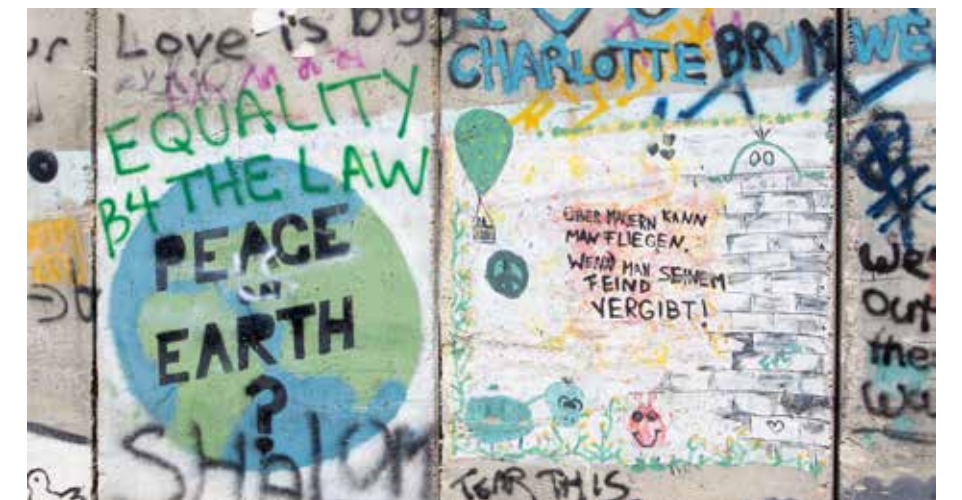 ur
Love is bigg
EQUALITY
B4 THE LAW
PEACE
ON
EARTH
?
SHALOM
CHARLOTTE BRUM WE
ÜBER MAUERN KANN
MAN FLIEGEN.
WENN MAN SEINEM
FEIND
VERGIBT!
TEAR THIS
We
Out
the
Wa